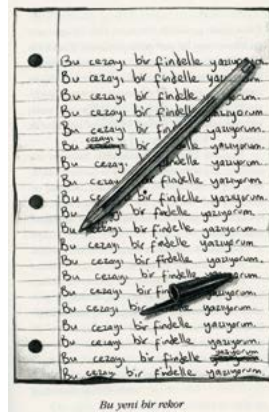 Bu cezayı bir findelle yazıyorum.
Bu cezayı bir findelle
Bu cezayı bir findelle yazıyorum.
Bu cezayı bir findelle yazıyorum.
Bu cezayı bir findelle yazıyorum.
Bu cezayı bir findelle yazıyorum.
Bu cezayı bir findelle yazıyorum.
Bu cezayı bir findelle yazıyorum.
Bu cezayı bir findelle yazıyorum.
Bu cezayı bir findelle yazıyorum.
Bu cezayı bir findelle yazıyorum.
Bu cezayı bir findelle yazıyorum.
Bu cezayı bir findelle yazıyorum.
Bu cezayı bir findelle
Bu cezayı bir yazıyorum.
Bu cezayı bir findelle yazıyorum.
Bu cezayı bir findelle yazıyorum.
Bu cezayı bir findelle yazıyorum.
Bu yeni bir rekor